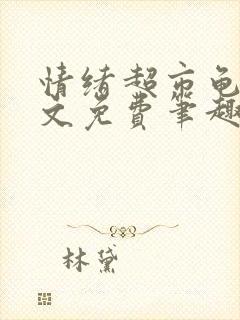 情绪超市龟
文免费笔趣
林黛